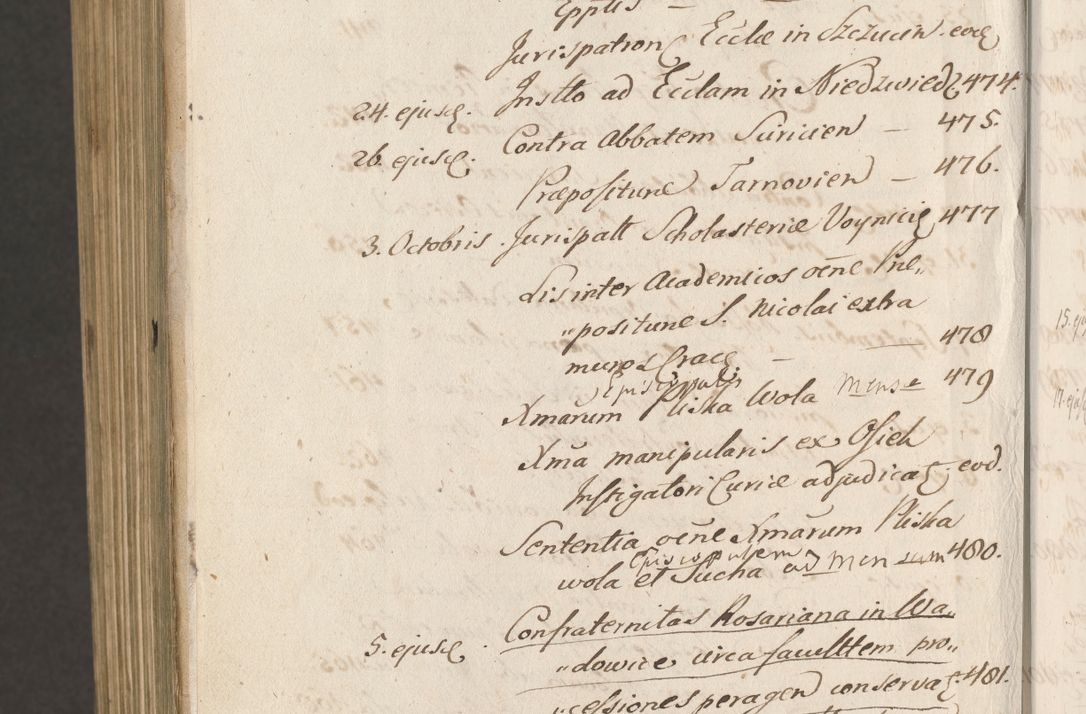 Jurispatron Eccłæ in Szczucin. eod
24. ejusd. Instło ad Eccłam in Niedzwiedz. 474.
26. ejusd. Contra Abbatem Suricien – 475.
Præpositure Tarnovien – 476.
3. Octobris. Jurispatt Scholasteriæ Voynicz 477
Lis inter Academicos oẽne Præ„
„positure S. Nicolai extra
muros Crac – 478
Episcopalis
Xmarum Pliska Wola Mense 479
Xma manipularis ex Osiek
Instigatori Curiæ adjudicat; eod.
Sententia oẽne Xmarum Pliska
Episcopalem
wola et Sucha ad Mensam 480.
5. ejusd. Confraternitas Rosariana in Wa„
„dowice circa facultem pro„
„cessiones peragen conservat. 481.